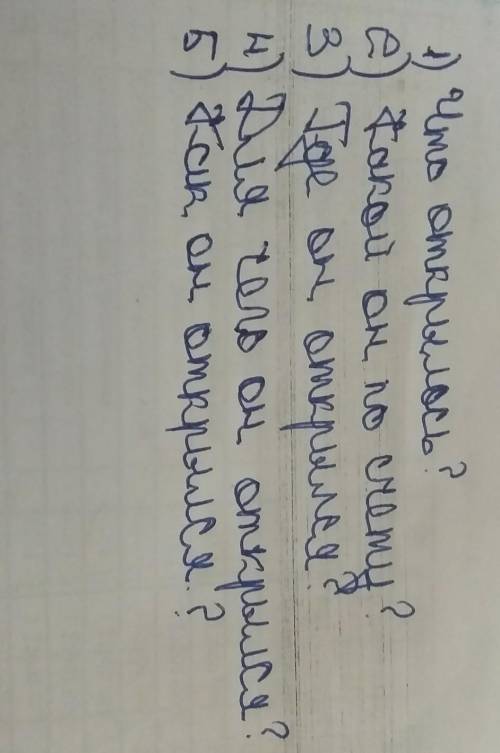 1) Что открылось?
2) Какой он по счету?
3) Где он открылся?
4) Для чего он открылся?
5) Как он открылся?